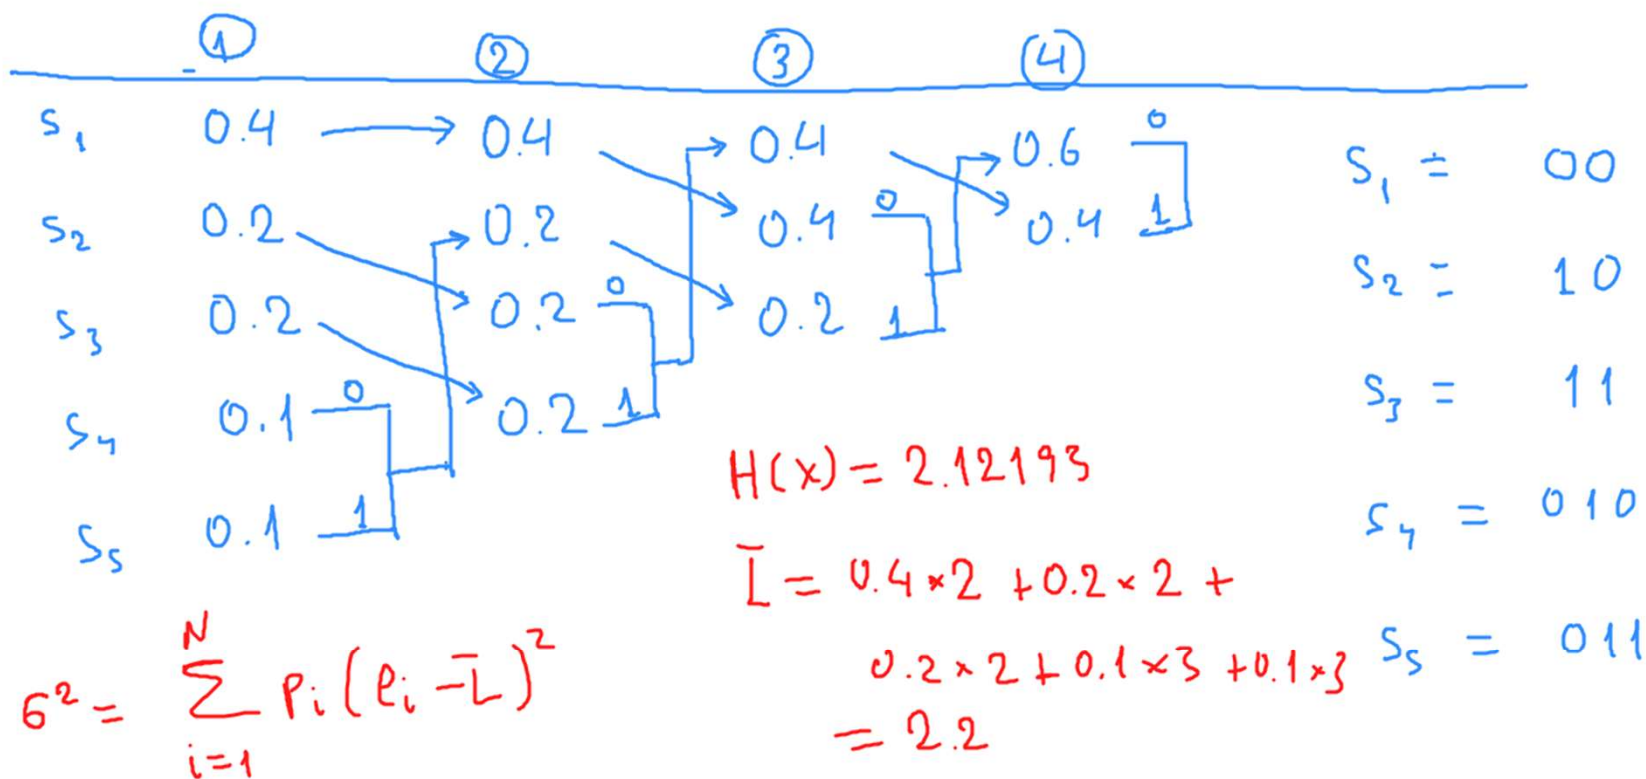 ① ② ③ ④
S₁ 0.4 → 0.4 0.4 0.6 0
S₂ 0.2 0.2 0.4 0 0.4 1
S₃ 0.2 0.2 0 0.2 1
S₄ 0.1 0 0.2 1
S₅ 0.1 1
S₁ = 00
S₂ = 10
S₃ = 11
S₄ = 010
S₅ = 011
H(x) = 2.12193
L̄ = 0.4×2 + 0.2×2 +
0.2×2 + 0.1×3 + 0.1×3
= 2.2
σ² = N Σ i=1 Pᵢ(ℓᵢ - L̄)²